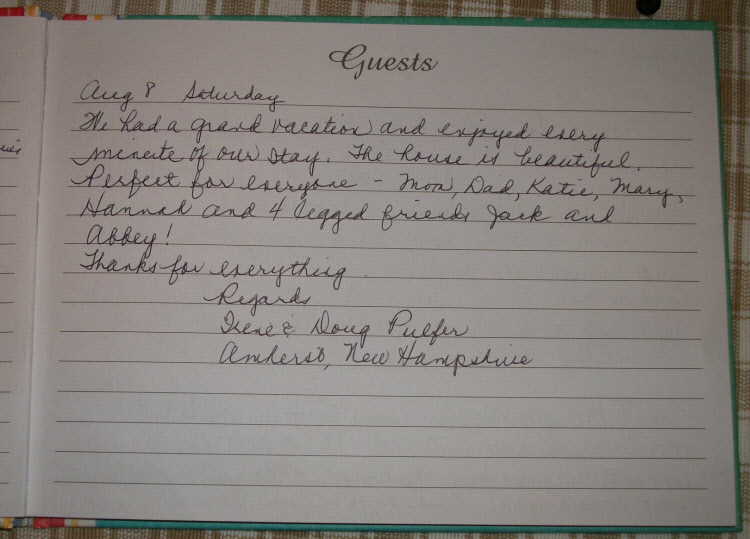 Guests
Aug 8 Saturday
We had a grand vacation and enjoyed every
minute of our stay. The house is beautiful.
Perfect for everyone - Mom, Dad, Katie, Mary,
Hannah and 4 legged friends Jack and
Abbey!
Thanks for everything.
Regards
Irene & Doug Pulfer
Amherst, New Hampshire